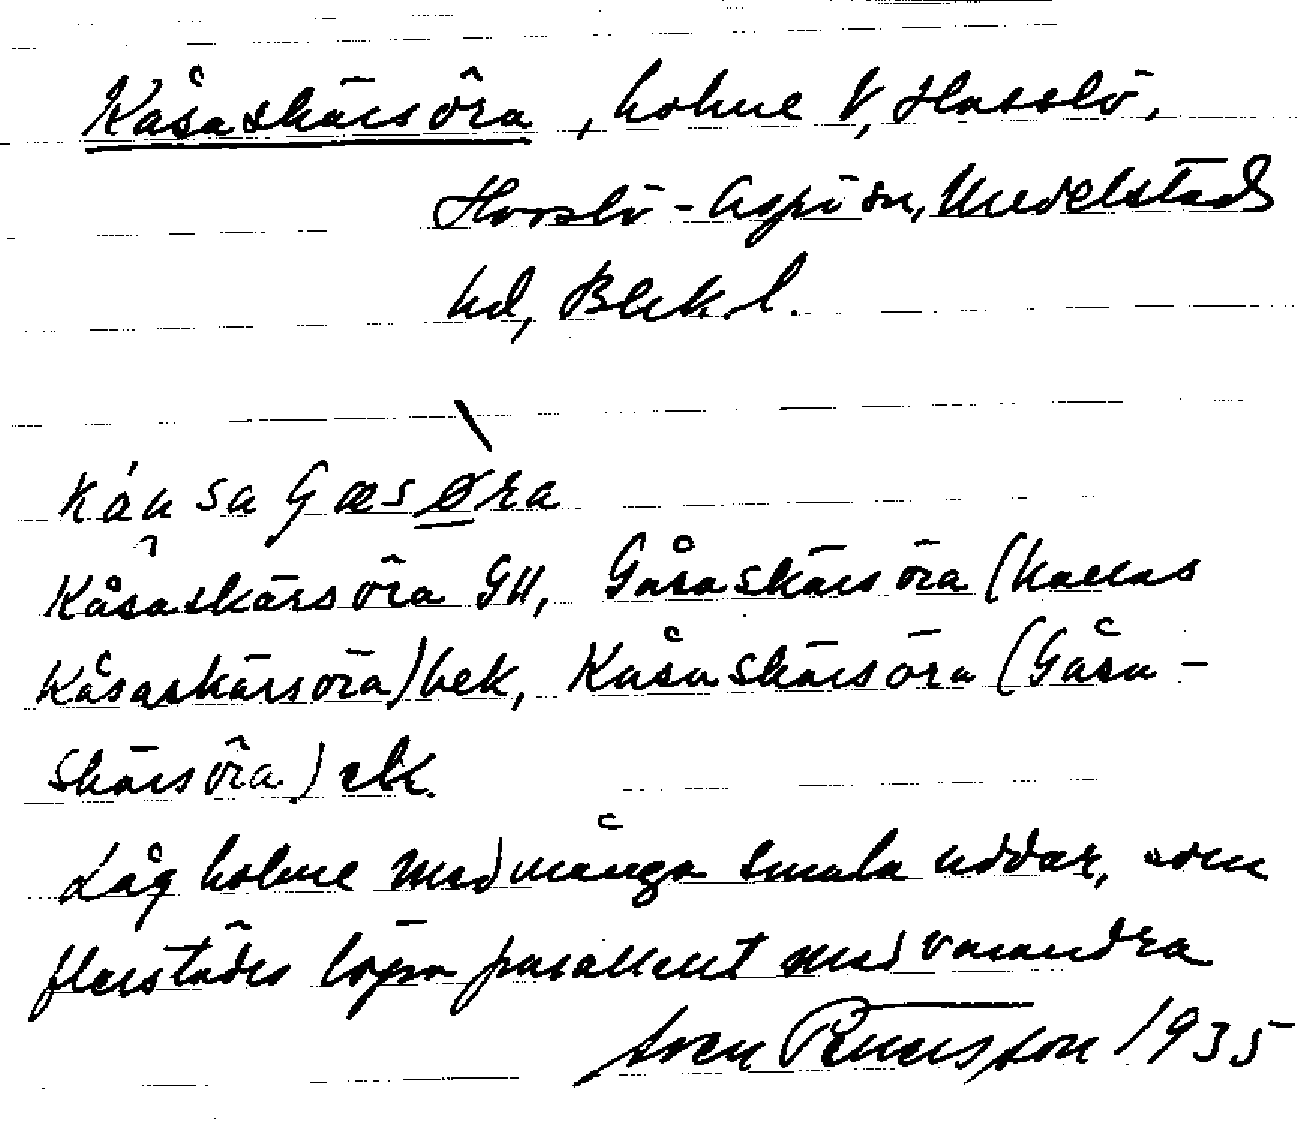 Kåsaskärsöra, holme V, Hasslö,
Hasslö-Aspö sn, Medelstads
hd, Blek. l.
kånsagæsøra
Kåsaskärsöra GH, Gåsaskärsöra (kallas
Kåsaskärsöra) bek, Kåsaskärsöra (Gåsa-
skärsöra) ek.
Låg holme med många smala uddar, som
flerstädes löpa parallellt med varandra
Sven Benson 1935